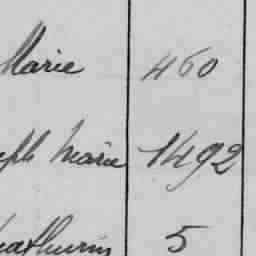 Marie 460
eph Marie 1492
athurin 5